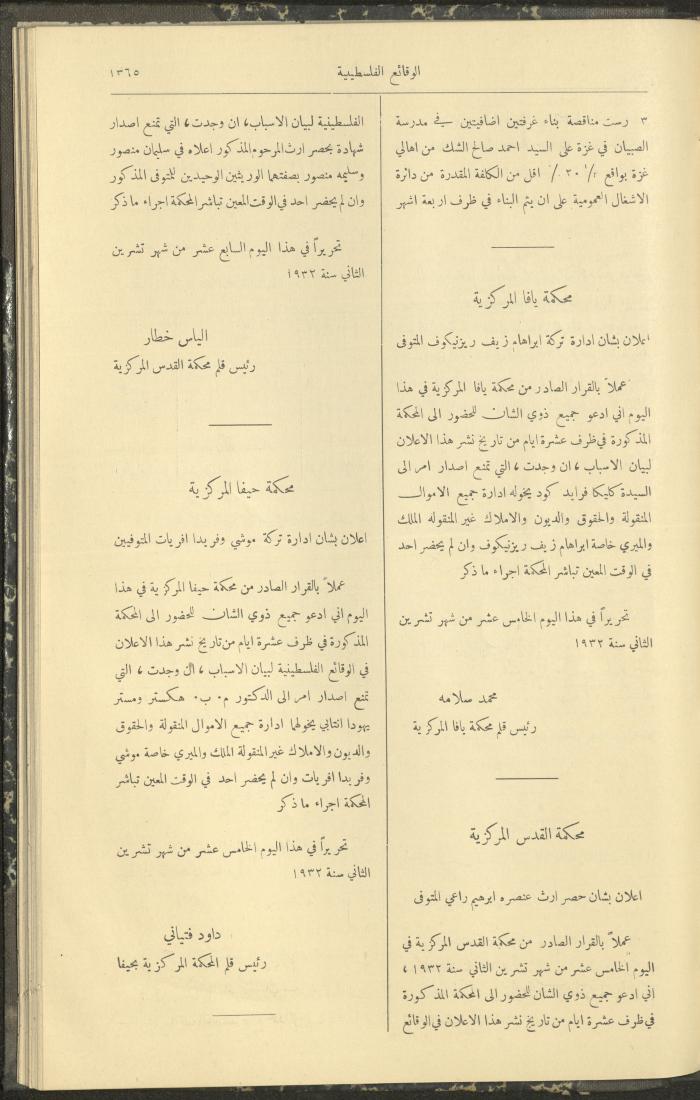 الوقائع الفلسطينية
١٣٦٥
٣ رست مناقصة بناء غرفتين اضافيتين في مدرسة
الصبيان في غزة على السيد احمد صالح الشك من اهالي
غزة بواقع ٢٠ ٪ اقل من الكلفة المقدرة من دائرة
الاشغال العمومية على ان يتم البناء في ظرف اربعة اشهر
محكمة يافا المركزية
اعلان بشان ادارة تركة ابراهام زيف ريزنيكوف المتوفى
عملاً بالقرار الصادر من محكمة يافا المركزية في هذا
اليوم اني ادعو جميع ذوي الشان للحضور الى المحكمة
المذكورة في ظرف عشرة ايام من تاريخ نشر هذا الاعلان
لبيان الاسباب، ان وجدت، التي تمنع اصدار امر الى
السيدة كليكا فرايد كود يخوله ادارة جميع الاموال
المنقولة والحقوق والديون والاملاك غير المنقوله الملك
والميري خاصة ابراهام زيف ريزنيكوف وان لم يحضر احد
في الوقت المعين تباشر المحكمة اجراء ما ذكر
تحريراً في هذا اليوم الخامس عشر من شهر تشرين
الثاني سنة ١٩٣٢
محمد سلامه
رئيس قلم محكمة يافا المركزية
محكمة القدس المركزية
اعلان بشان حصر ارث عنصره ابرهيم راعي المتوفى
عملاً بالقرار الصادر من محكمة القدس المركزية في
اليوم الخامس عشر من شهر تشرين الثاني سنة ١٩٣٢ ،
اني ادعو جميع ذوي الشان للحضور الى المحكمة المذكورة
في ظرف عشرة ايام من تاريخ نشر هذا الاعلان في الوقائع
الفلسطينية لبيان الاسباب، ان وجدت، التي تمنع اصدار
شهادة بحصر ارث المرحوم المذكور اعلاه في سليمان منصور
وسليمه منصور بصفتهما الوريثين الوحيدين للمتوفى المذكور
وان لم يحضر احد في الوقت المعين تباشر المحكمة اجراء ما ذكر
تحريراً في هذا اليوم السابع عشر من شهر تشرين
الثاني سنة ١٩٣٢
الياس خطار
رئيس قلم محكمة القدس المركزية
محكمة حيفا المركزية
اعلان بشان ادارة تركة موشي وفريدا افريات المتوفيين
عملاً بالقرار الصادر من محكمة حيفا المركزية في هذا
اليوم اني ادعو جميع ذوي الشان للحضور الى المحكمة
المذكورة في ظرف عشرة ايام من تاريخ نشر هذا الاعلان
في الوقائع الفلسطينية لبيان الاسباب ، ان وجدت ، التي
تمنع اصدار امر الى الدكتور م. ب. هكستر ومستر
يهودا انتابي يخولهما ادارة جميع الاموال المنقولة والحقوق
والديون والاملاك غير المنقولة الملك والميري خاصة موشي
وفريدا افريات وان لم يحضر احد في الوقت المعين تباشر
المحكمة اجراء ما ذكر
تحريراً في هذا اليوم الخامس عشر من شهر تشرين
الثاني سنة ١٩٣٢
داود فتياني
رئيس قلم المحكمة المركزية بحيفا